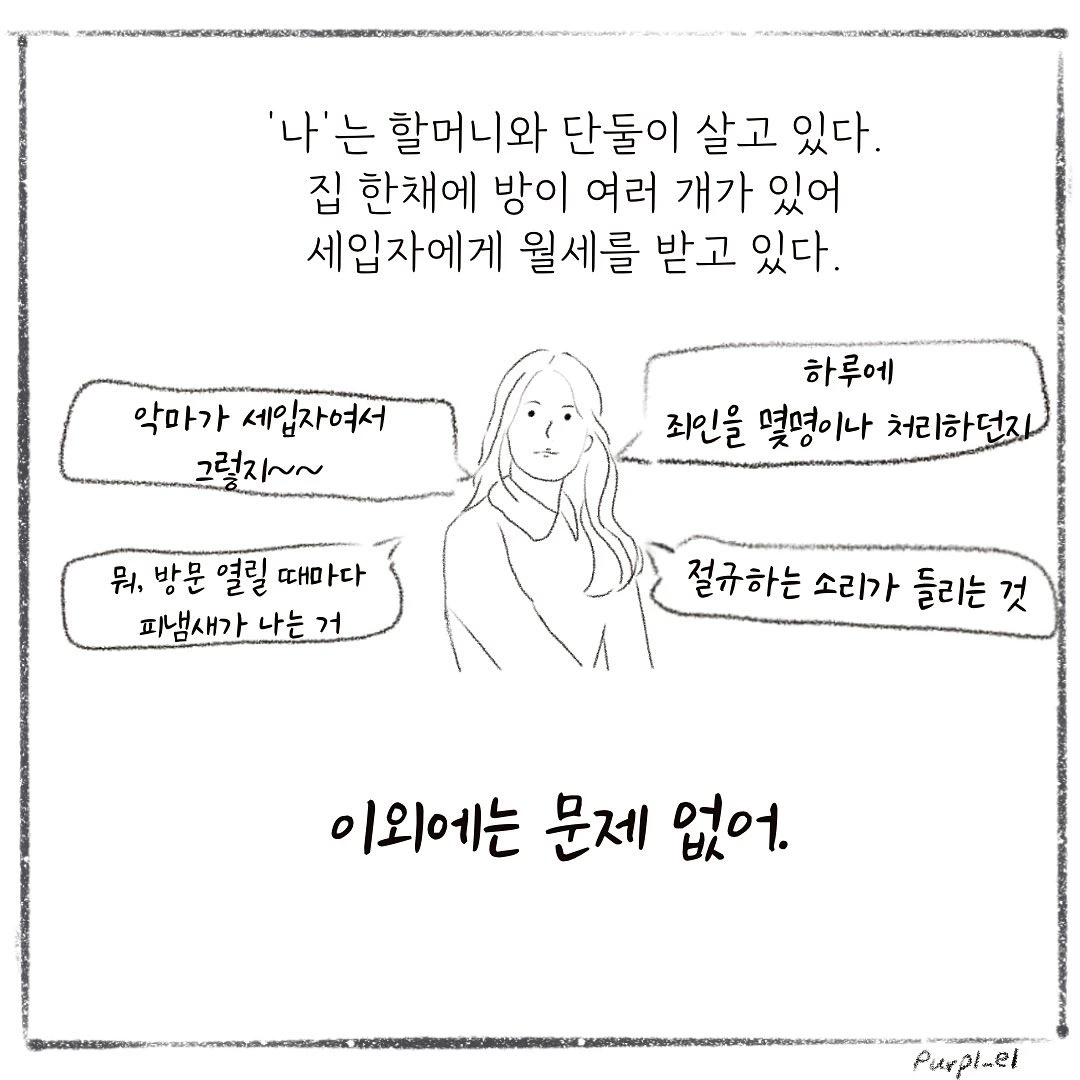 '나'는 할머니와 단둘이 살고 있다.
집 한채에 방이 여러 개가 있어
세입자에게 월세를 받고 있다.
악마가 세입자여서
그렇지~~
하루에
죄인을 몇명이나 처리하던지
뭐, 방문 열릴 때마다
피냄새가 나는 거
절규하는 소리가 들리는 것
이외에는 문제 없어.
Purpl_el